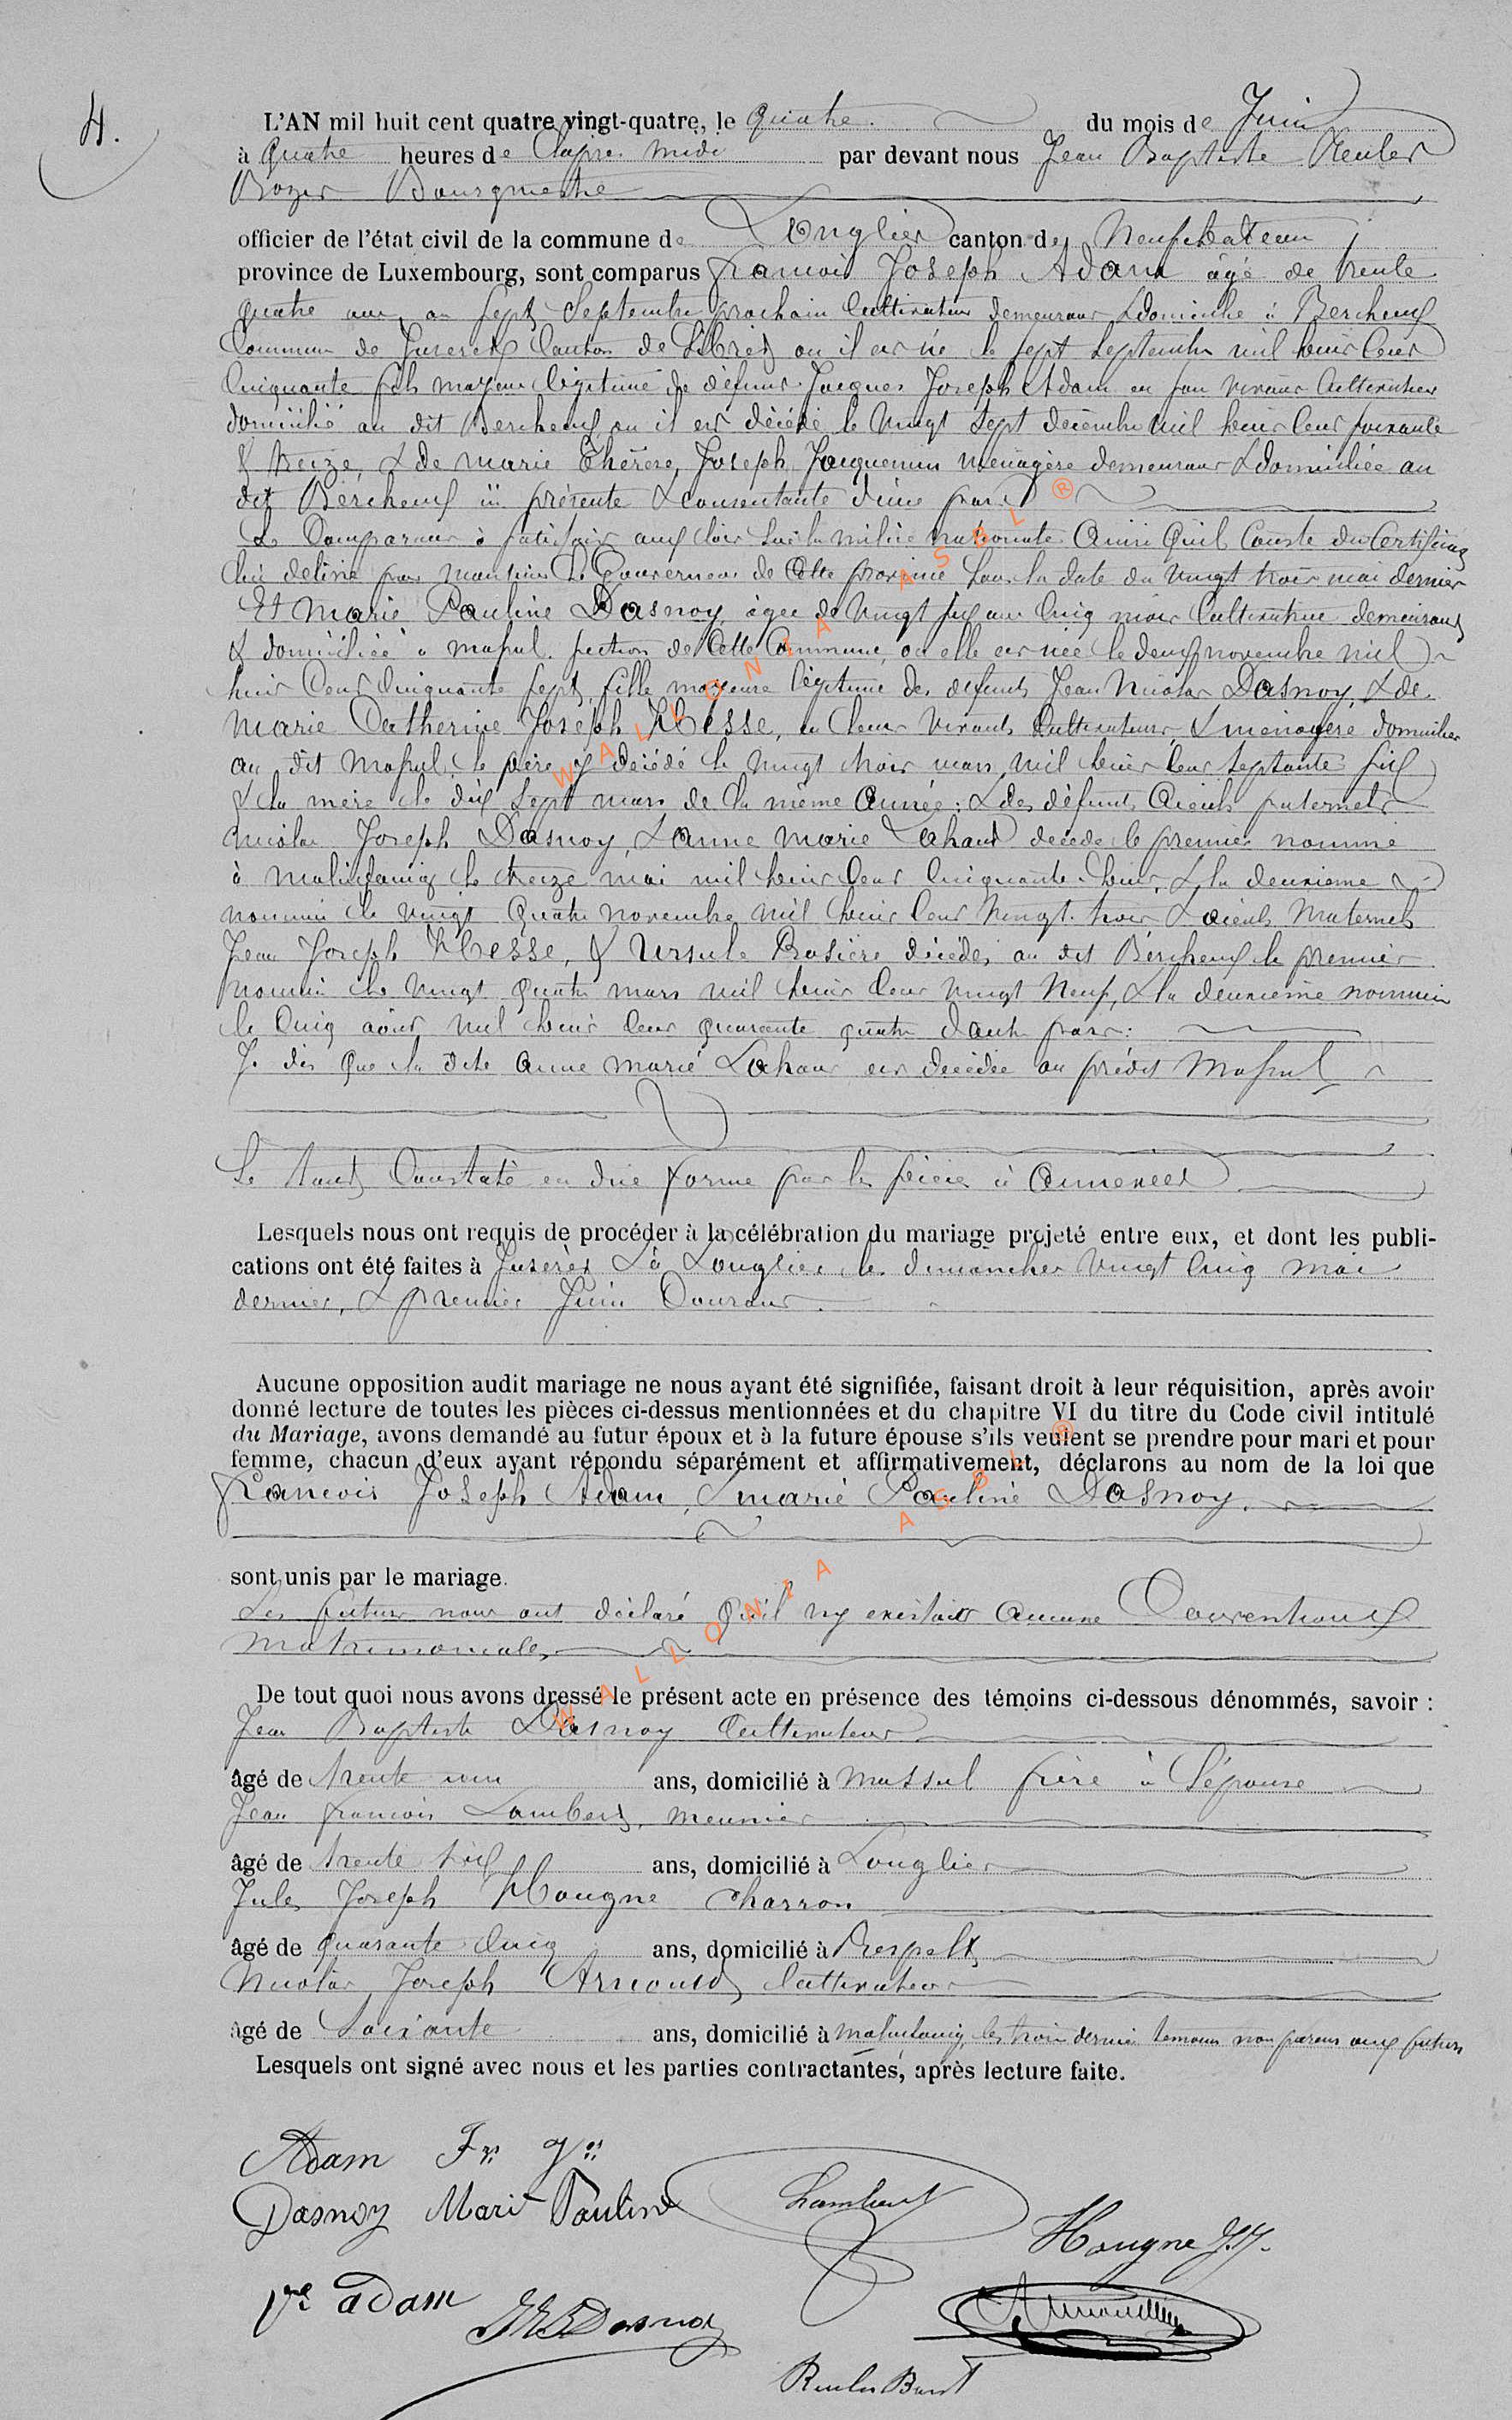 4.
L'AN mil huit cent quatre vingt-quatre, le quatre du mois de Juin
à quatre heures de l'après midi par devant nous Jean Baptiste Reuler
Bourgmestre
officier de l'état civil de la commune de Longlier canton de Neufchateau
province de Luxembourg, sont comparus François Joseph Adam âgé de trente
quatre ans au sept Septembre prochain Cultivateur demeurant & domicilié à Bercheux
Commune de Juseret Canton de Sibret où il est né le sept septembre mil huit cent
cinquante fils majeur légitime de défunt Jacques Joseph Adam en son vivant Cultivateur
domicilié au dit Bercheux où il est décédé le vingt sept décembre mil huit cent soixante
& treize, & de marie Thérèse Joseph Jacquemin ménagère demeurant & domiciliée au
dit Bercheux ici présente & consentante d'une part
Le Comparant à satisfait aux lois sur la milice nationale Ainsi qu'il Conste du Certificat
lui délivré par monsieur Le Gouverneur de Cette province sous la date du vingt trois mai dernier
Et Marie Pauline Dasnoy, agée de vingt six ans cinq mois Cultivatrice demeurant
& domiciliée à massul section de Cette Commune, où elle est née le deux novembre mil
huit Cent Cinquante sept, fille majeure légitime des défunts Jean Nicolas Dasnoy, & de
Marie Catherine Joseph Hesse, en leur vivant Cultivateur & ménagère domiciliés
au dit Massul, le père y décédé le vingt trois mars mil huit cent septante six
& la mère le dix sept mars de la même Année; & des défunts Aieuls paternels
Nicolas Joseph Dasnoy, & Anne Marie Lahaut décédé le premier nommé
à Molinfaing le treize mai mil huit Cent Cinquante huit, & la deuxième
nommée le vingt quatre novembre mil huit Cent vingt trois & aieuls Maternels
Jean Joseph Hesse, & Ursule Rosière décédés au dit Bercheux le premier
nommé le vingt quatre mars mil huit Cent vingt Neuf, & la deuxième nommée
le Cinq août mil huit Cent quarante quatre d'autre part:
Je dis que la dite Anne Marie Lahaut est décédée au prédit Massul
Le tout Constaté en due forme par les pièces ci Annexées
Lesquels nous ont requis de procéder à la célébration du mariage projeté entre eux, et dont les publi-
cations ont été faites à Juseret & à Longlier les dimanches vingt cinq mai
dernier, & premier Juin Courant.
Aucune opposition audit mariage ne nous ayant été signifiée, faisant droit à leur réquisition, après avoir
donné lecture de toutes les pièces ci-dessus mentionnées et du chapitre VI du titre du Code civil intitulé
du Mariage, avons demandé au futur époux et à la future épouse s'ils veulent se prendre pour mari et pour
femme, chacun d'eux ayant répondu séparément et affirmativement, déclarons au nom de la loi que
François Joseph Adam, & marie Pauline Dasnoy.
sont unis par le mariage.
Les futurs nous ont déclaré qu'il n'y existait Aucune Conventions
Matrimoniales,
De tout quoi nous avons dressé le présent acte en présence des témoins ci-dessous dénommés, savoir :
Jean Baptiste Dasnoy Cultivateur
âgé de trente un ans, domicilié à Massul frère à l'épouse
Jean François Lambert, meunier
âgé de trente six ans, domicilié à Longlier
Jules Joseph Hougne Charron
âgé de quarante cinq ans, domicilié à Respelt
Nicolas Joseph Arnould, Cultivateur
âgé de soixante ans, domicilié à Molinfaing, les trois dernier témoins non parens aux futurs
Lesquels ont signé avec nous et les parties contractantes, après lecture faite.
Adam Fr. Js.
Dasnoy Marie Pauline
Lambert
Hougne J.J.
Ve adam
JB Dasnoy
Arnould
WALLONIA ASBL ®
WALLONIA ASBL ®